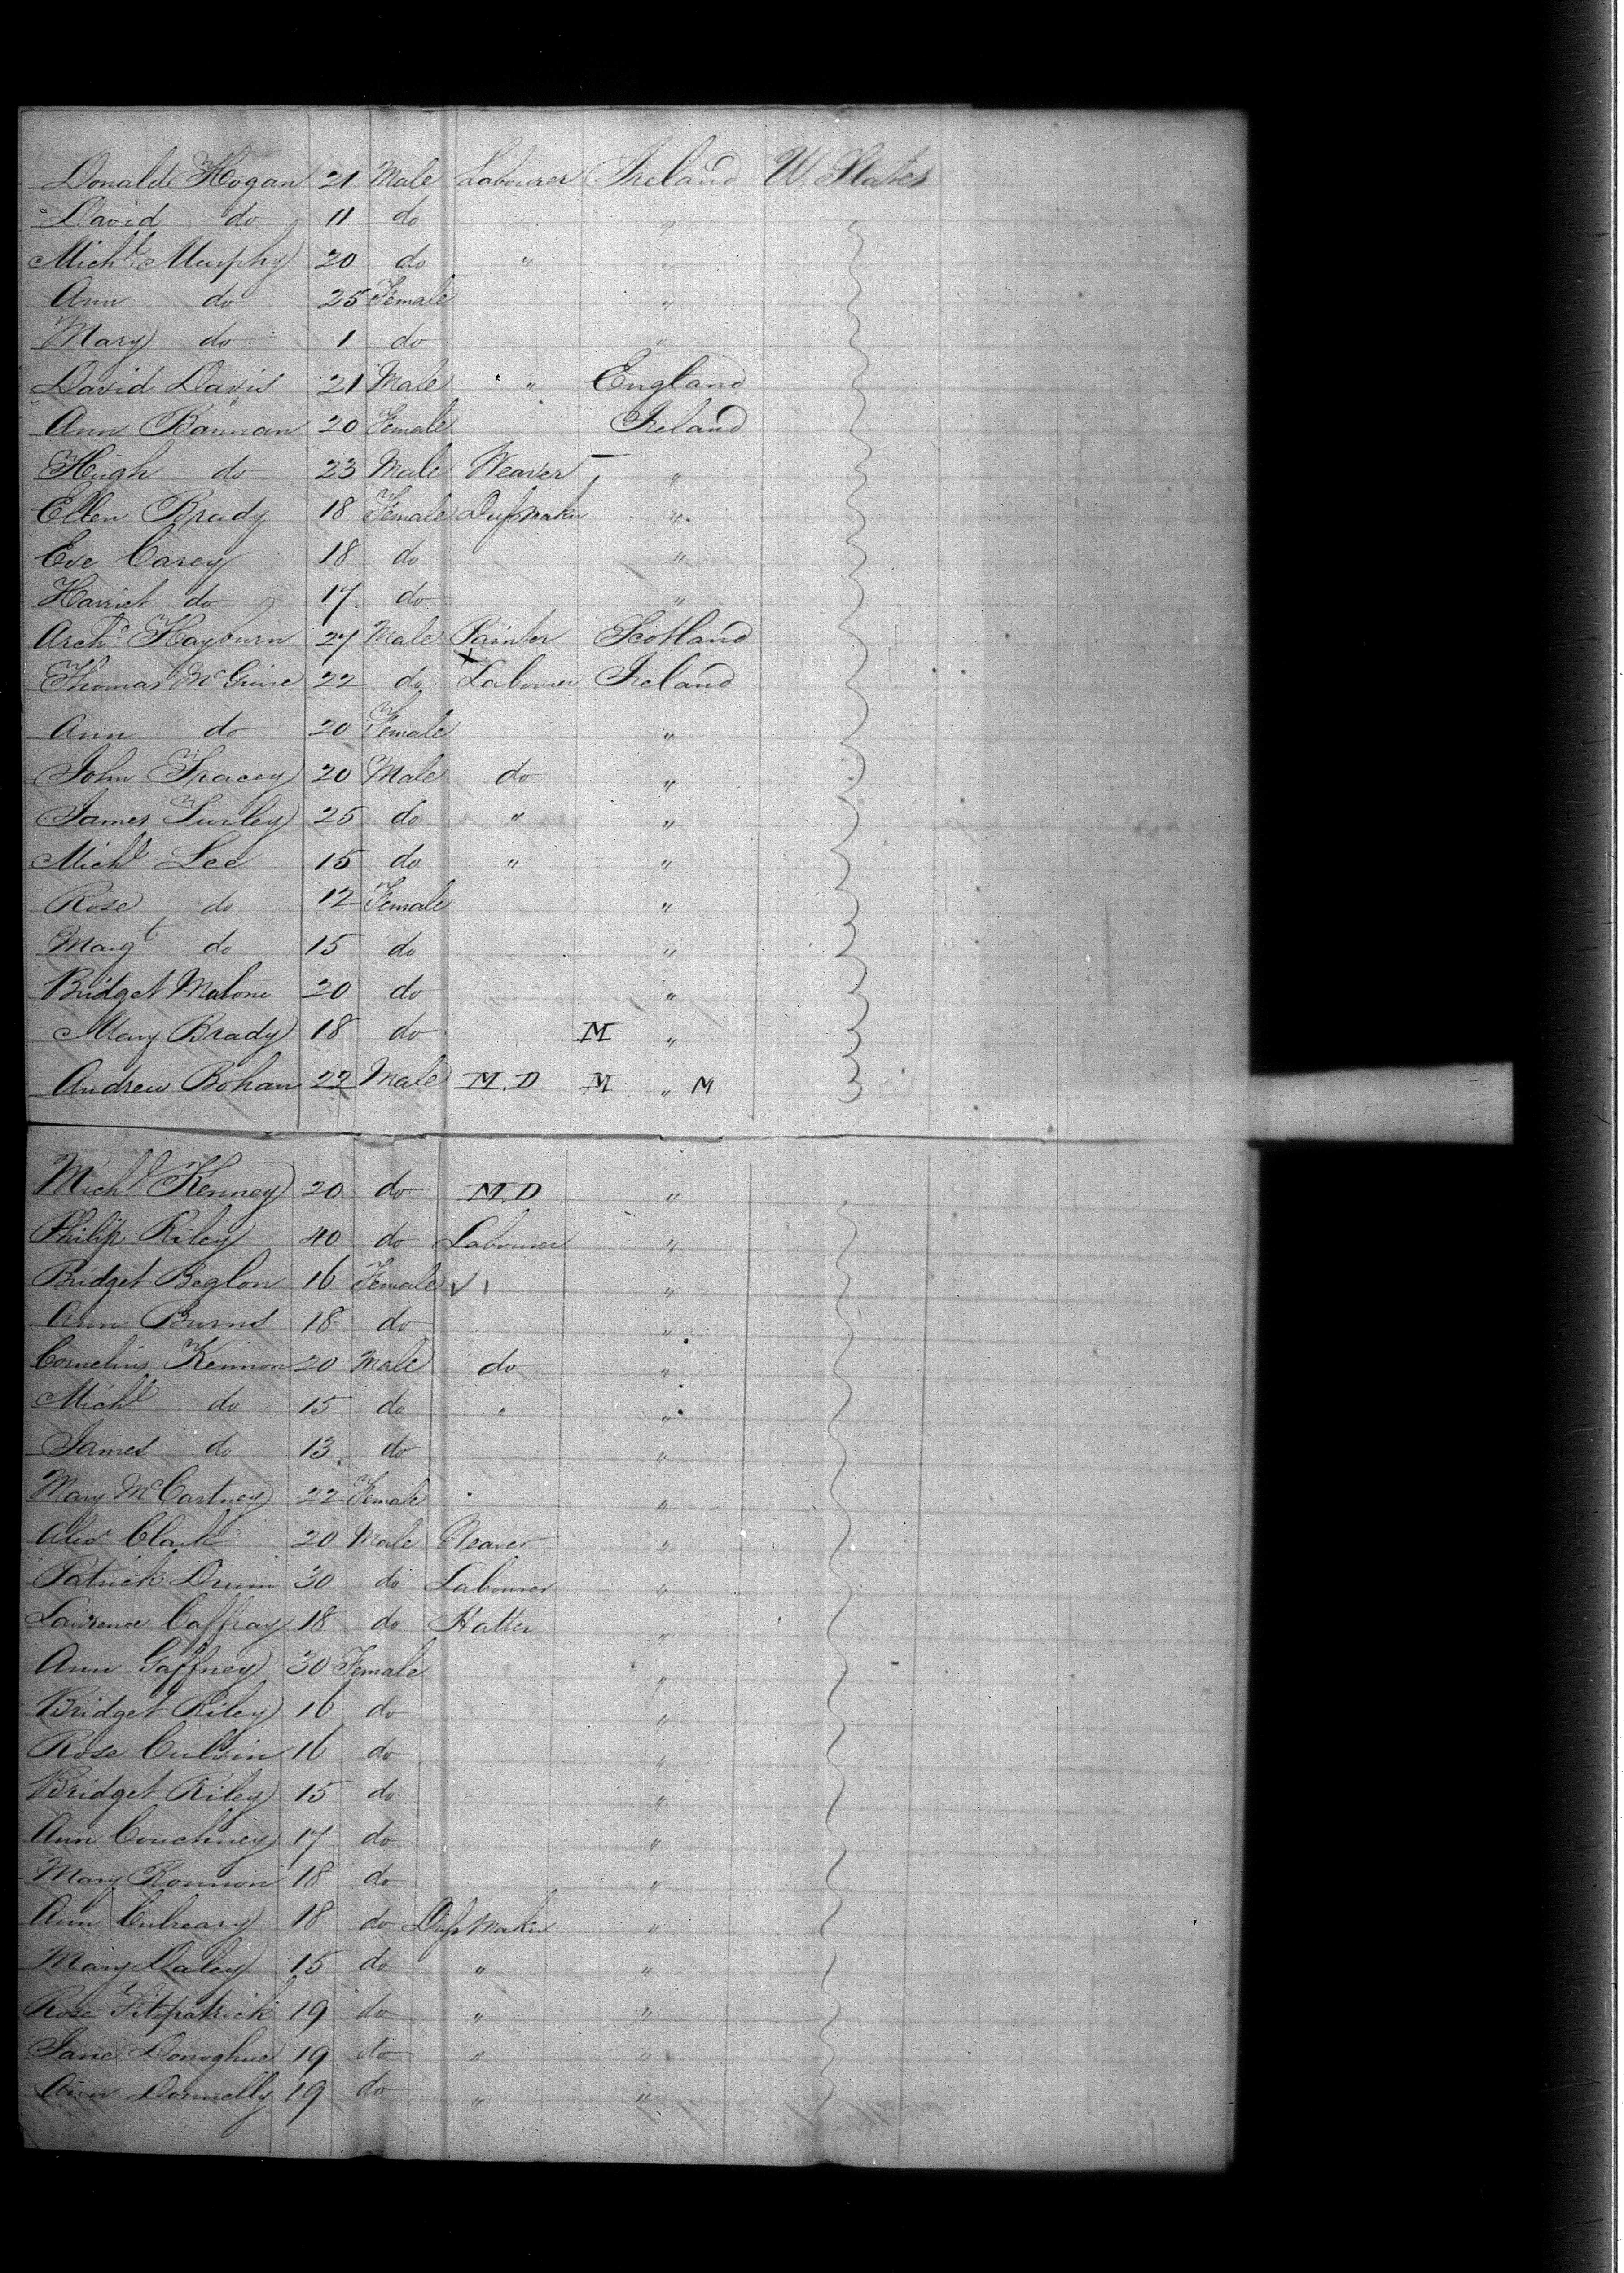 Donald Hogan 21 Male Labourer Ireland U. States
David do 11 do "
Michl Murphy 20 do " "
Ann do 25 Female "
Mary do 1 do "
David Davis 21 Male " England
Ann Bannan 20 Female Ireland
Hugh do 23 Male Weaver "
Ellen Brady 18 Female Dressmaker "
Eve Carey 18 do "
Harriet do 17 do "
Archd Hayburn 27 Male Painter Scotland
Thomas McGuire 22 do Labourer Ireland
Ann do 20 Female "
John Tracey 20 Male do "
James Turley 25 do " "
Michl Lee 15 do " "
Rose do 12 Female "
Margt do 15 do "
Bridget Malone 20 do "
Mary Brady 18 do M "
Andrew Bohan 22 Male M.D M " M
Michl Kenney 20 do M.D "
Philip Riley 40 do Labourer "
Bridget Beglon 16 Female "
Ann Burns 18 do "
Cornelius Kennon 20 Male do "
Michl do 15 do " "
James do 13 do "
Mary McCartney 22 Female "
Alexr Clark 20 Male Weaver "
Patrick 30 do Labourer "
Lawrence Caffray 18 do Hatter "
Ann Gaffney 30 Female "
Bridget Riley 16 do "
Rose Culvin 16 do "
Bridget Riley 15 do "
Ann 17 do "
Mary 18 do "
Ann 18 do Dressmaker "
Mary Daley 15 do " "
Rose Fitzpatrick 19 do " "
Jane Donoghue 19 do " "
Ann Donnelly 19 do " "